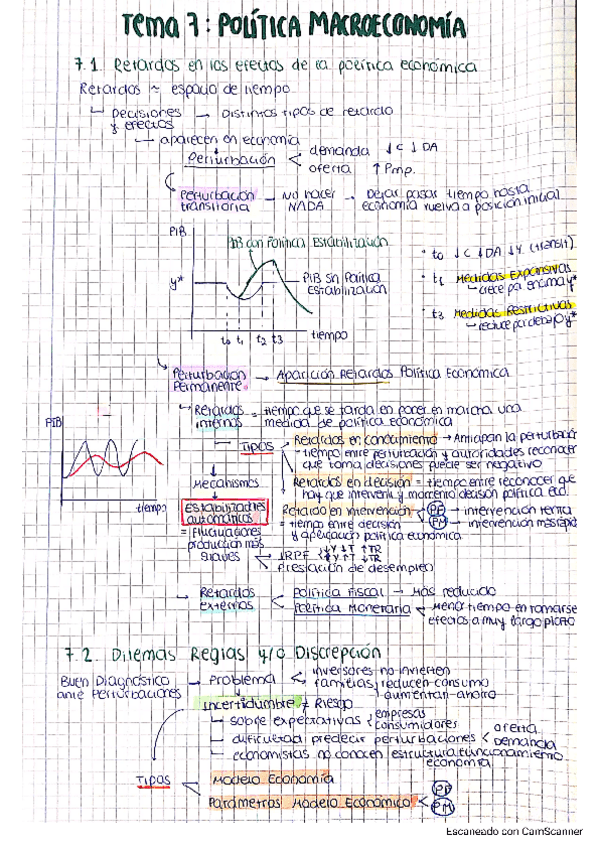 Tema 7: POLÍTICA MACROECONOMÍA
7.1. Retardos en los efectos de la política económica
Retardos ~ espacio de tiempo
decisiones y efectos → Distintos tipos de retardo
aparecen en economía
Perturbación < demanda ↓C ↓DA
oferta ↑Pmp.
Perturbación transitoria → NO hacer NADA → Dejar pasar tiempo hasta economía vuelva a posición inicial
PIB
PIB con Política Estabilización
y*
PIB sin Política Estabilización
t0 t1 t2 t3 tiempo
• t0 ↓C ↓DA ↓Y (transit).
• t1 Medidas Expansivas
crece por encima y*
• t3 Medidas Restrictivas
reduce por debajo y*
Perturbación Permanente → Aparición Retardos Política Económica
Retardos internos = tiempo que se tarda en poner en marcha una medida de política económica
PIB
tiempo
TIPOS
Retardos en conocimiento → Anticipan la perturbación
- tiempo entre perturbación y autoridades reconocer que toma decisiones puede ser negativo
Retardos en decisión = tiempo entre reconocer que hay que intervenir y momento decisión política ec.
Retardo en intervención < PF → intervención lenta
PM → intervención más rápida
= tiempo entre decisión y aplicación política económica
Mecanismos
Estabilizadores automáticos
= Fluctuaciones producción más suaves
IRPF { ↓Y ↓T ↑TR
↑Y ↑T ↓TR
Prestación de desempleo
Retardos externos
Política Fiscal → Más reducido
Política Monetaria < Menor tiempo en tomarse
efectos a muy largo plazo
7.2. Dilemas Reglas y/o Discrepción
Buen Diagnóstico ante Perturbaciones → Problema < inversores no invierten
familias reducen consumo
aumentan ahorro
Incertidumbre ≠ Riesgo
sobre expectativas { empresas
consumidores
dificultad predecir perturbaciones < oferta
demanda
economistas no conocen estructura funcionamiento economía
TIPOS
Modelo Economía
Parámetros Modelo Económico < PF
PM
Escaneado con CamScanner